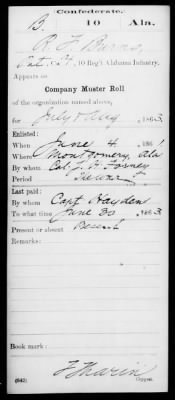 Confederate.
B. 10 Ala.
R. F. Burns
Pvt. Co. , 10 Reg't Alabama Infantry.
Appears on
Company Muster Roll
of the organization named above,
for July & Aug , 1863.
Enlisted:
When June 4 , 1861.
Where Montgomery, Ala
By whom Col. J. H. Forney
Period The war
Last paid:
By whom Capt Hayden
To what time June 30 , 1863.
Present or absent Present
Remarks:
Book mark:
(642) Copyist.